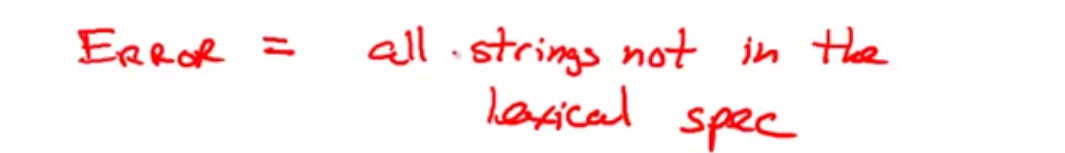 ERROR = all strings not in the
lexical spec